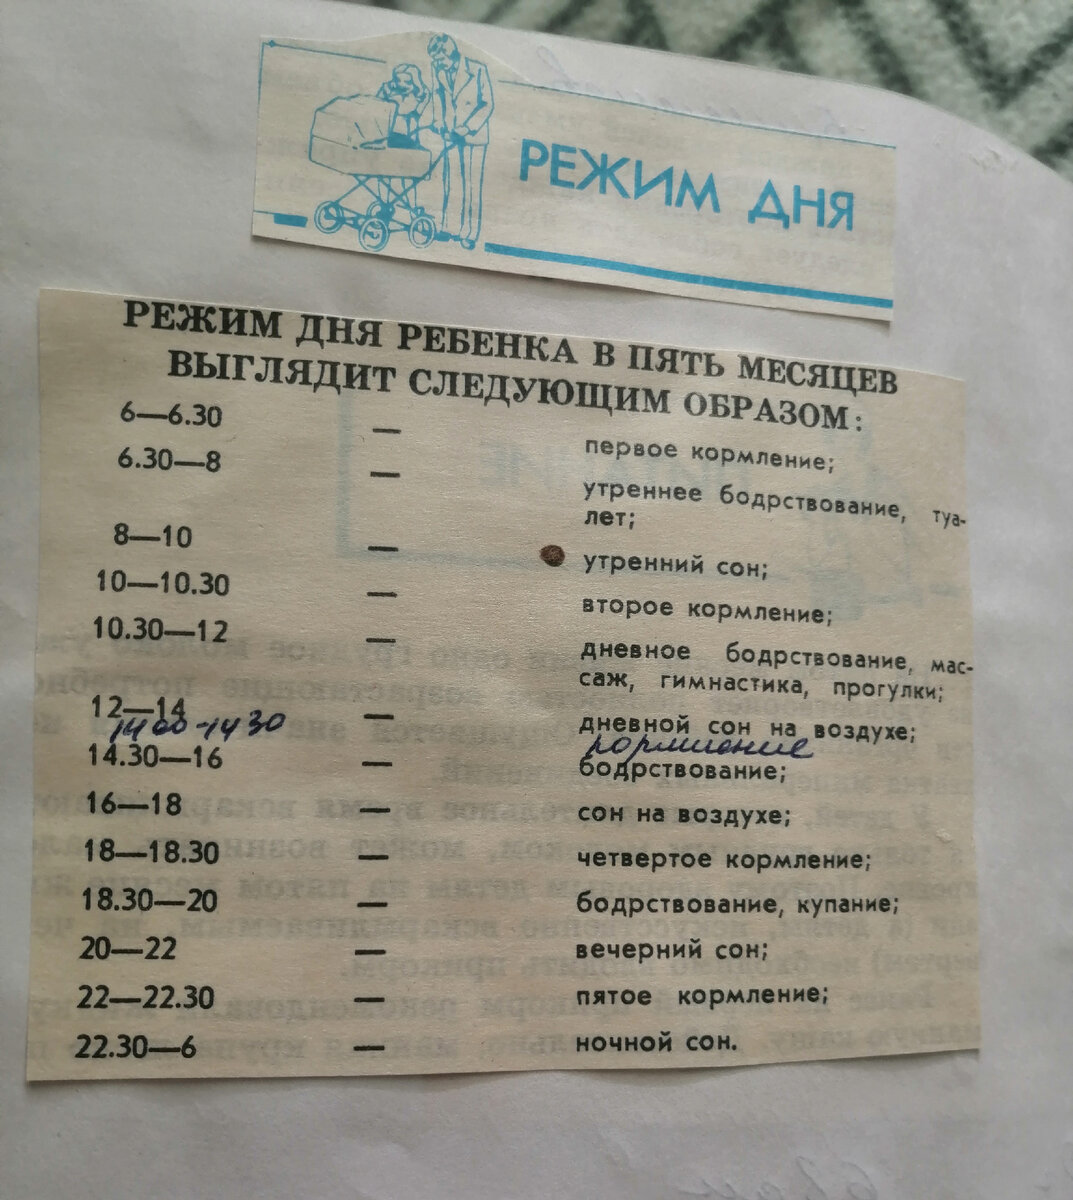 РЕЖИМ ДНЯ
РЕЖИМ ДНЯ РЕБЕНКА В ПЯТЬ МЕСЯЦЕВ
ВЫГЛЯДИТ СЛЕДУЮЩИМ ОБРАЗОМ:
6—6.30 — первое кормление;
6.30—8 — утреннее бодрствование, туа-
лет;
8—10 — утренний сон;
10—10.30 — второе кормление;
10.30—12 — дневное бодрствование, мас-
саж, гимнастика, прогулки;
12—14 — дневной сон на воздухе;
14 00-14 30 кормление
14.30—16 — бодрствование;
16—18 — сон на воздухе;
18—18.30 — четвертое кормление;
18.30—20 — бодрствование, купание;
20—22 — вечерний сон;
22—22.30 — пятое кормление;
22.30—6 — ночной сон.